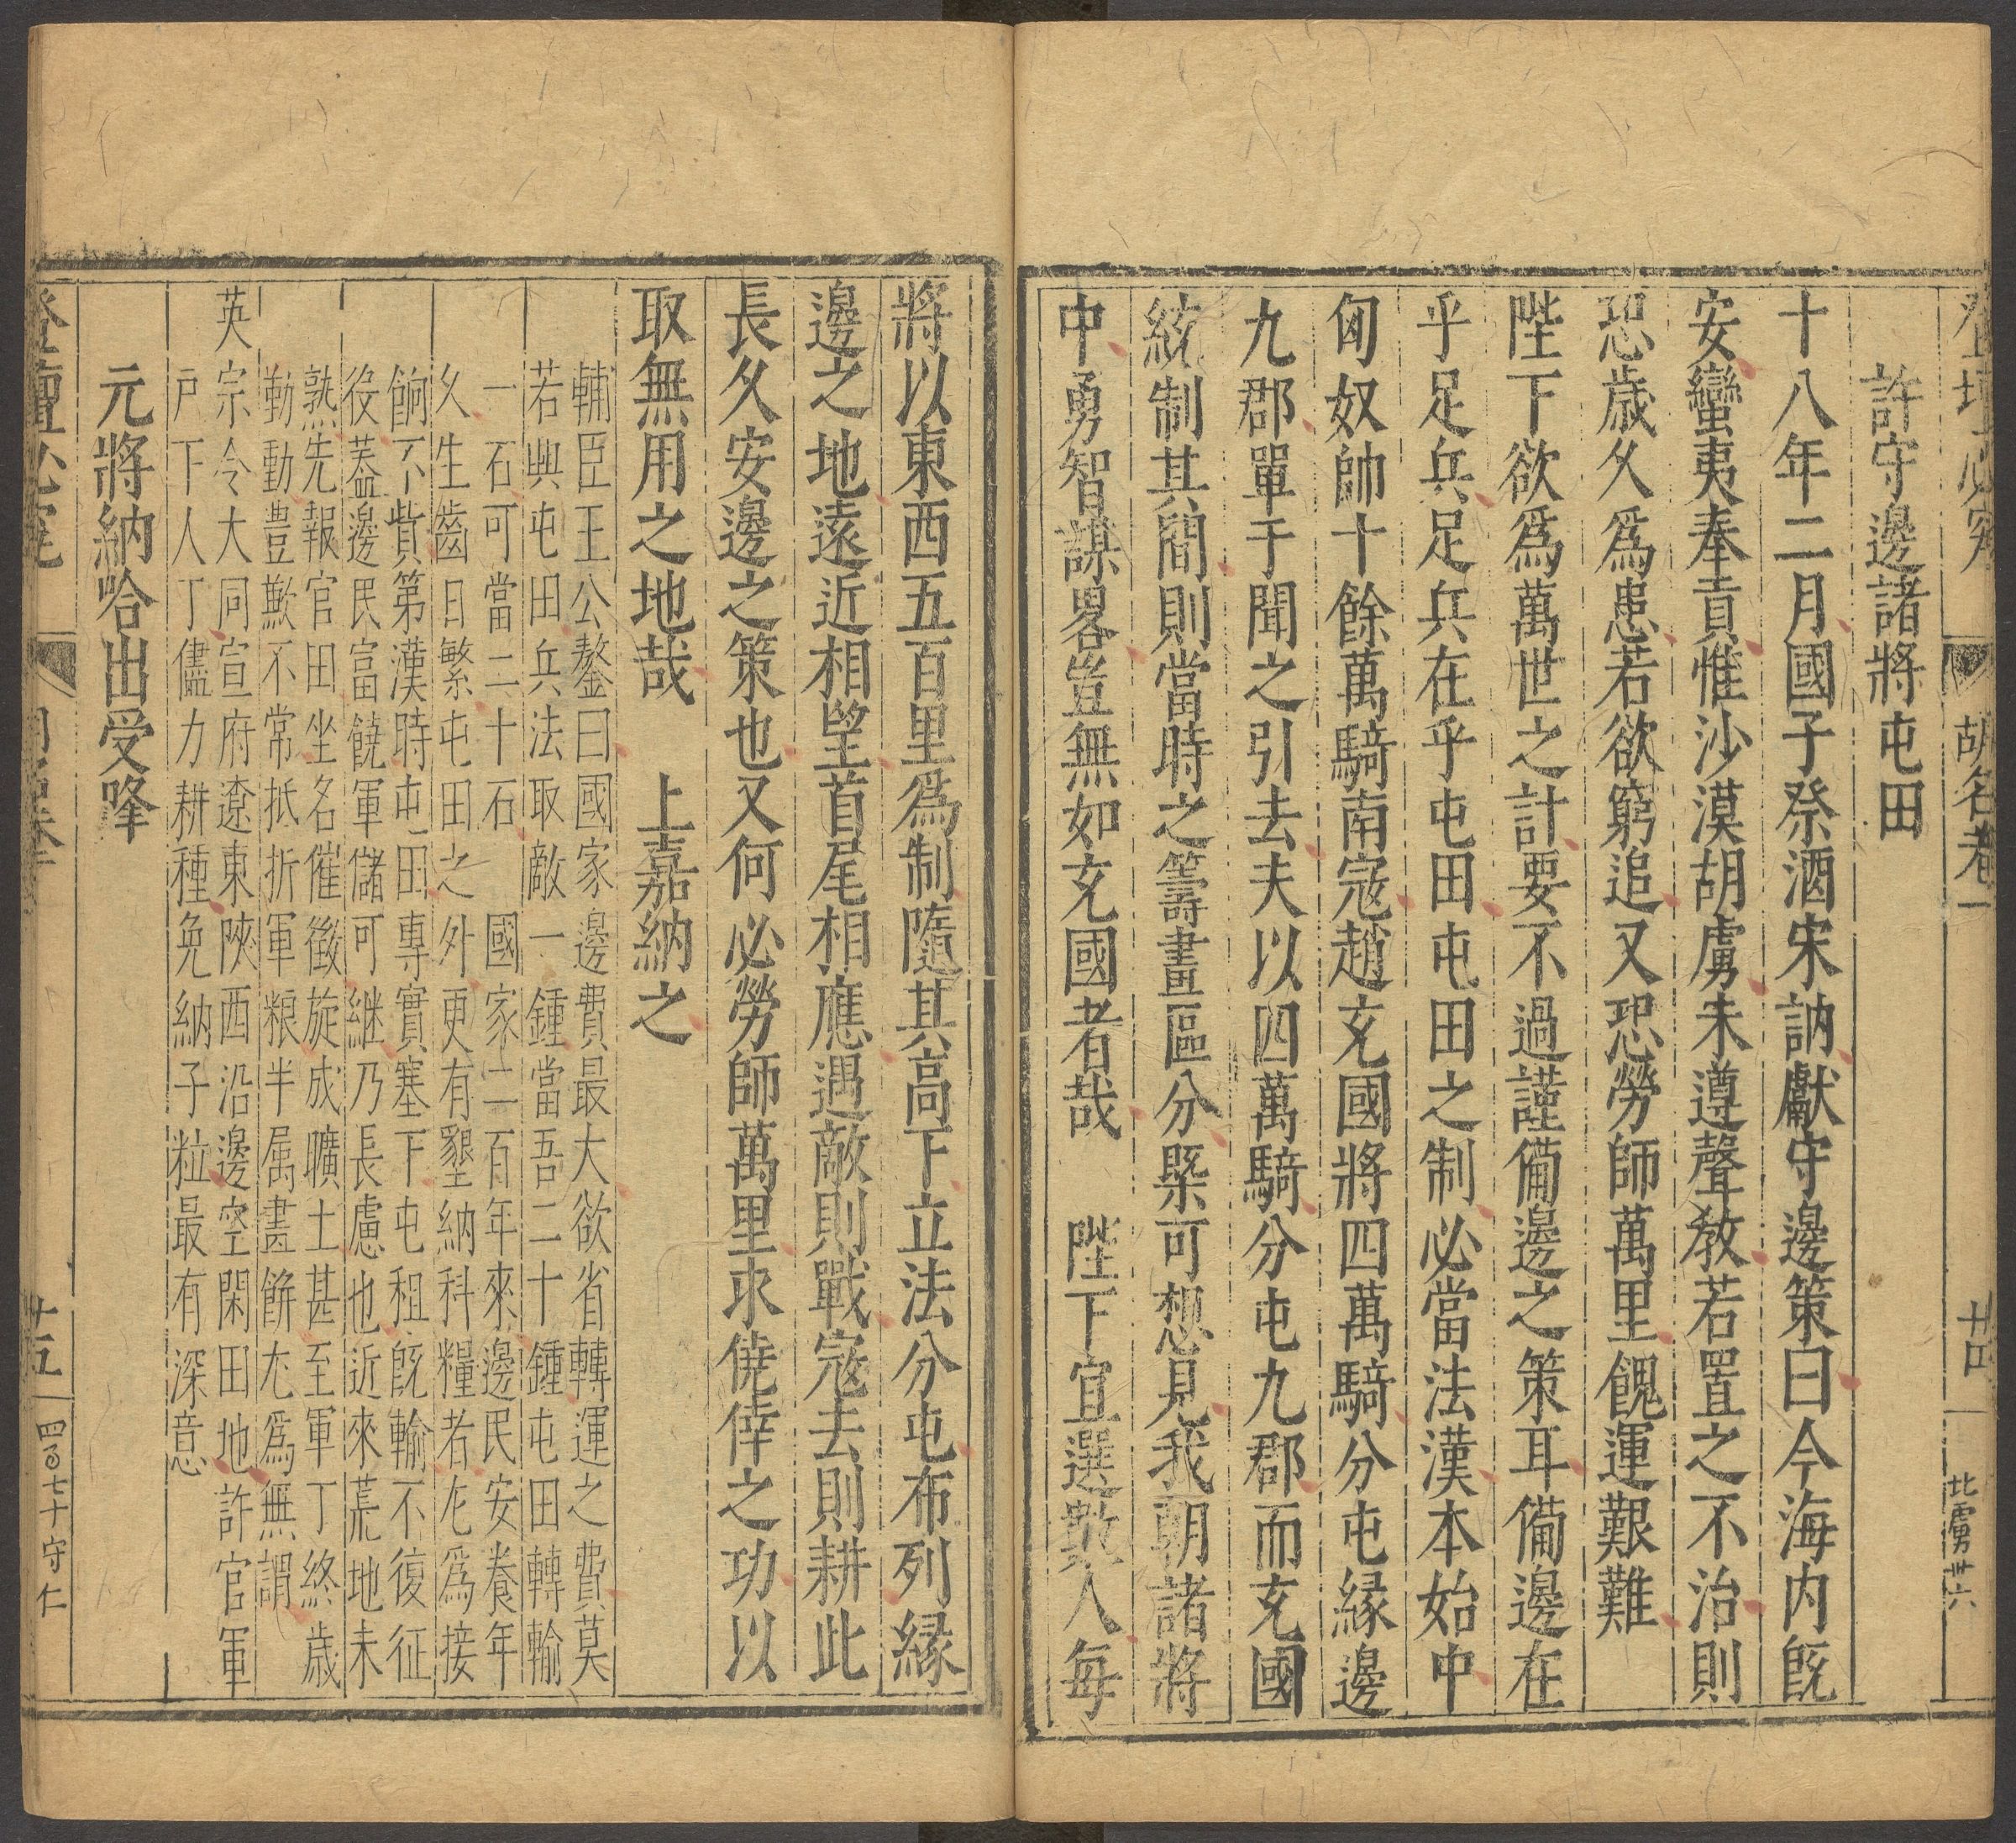 胡名卷一
廿四
北虜卅六
許守邊諸將屯田
十八年二月國子祭酒宋訥獻守邊策曰今海内旣
安蠻夷奉貢惟沙漠胡虜未遵聲教若置之不治則
恐歲久爲患若欲窮追又恐勞師萬里餽運艱難
陛下欲爲萬世之計要不過謹備邊之策耳備邊在
乎足兵足兵在乎屯田屯田之制必當法漢本始中
匈奴帥十餘萬騎南寇趙充國將四萬騎分屯緣邊
九郡單于聞之引去夫以四萬騎分屯九郡而充國
統制其間則當時之籌畫區分槩可想見我朝諸將
中勇智謀畧豈無如充國者哉　陛下宜選數人每
將以東西五百里爲制隨其高下立法分屯布列緣
邊之地遠近相望首尾相應遇敵則戰寇去則耕此
長久安邊之策也又何必勞師萬里求僥倖之功以
取無用之地哉　上嘉納之
輔臣王公鏊曰國家邊費最大欲省轉運之費莫
若興屯田兵法取敵一鍾當吾二十鍾屯田轉輸
一石可當二十石　國家二百年來邊民安養年
久生齒日繁屯田之外更有墾納科糧者尤爲接
餉不貲第漢時屯田專實塞下屯租旣輸不復征
役葢邊民富饒軍儲可継乃長慮也近來荒地未
熟先報官田坐名催徵旋成曠土甚至軍丁終歲
勤動豊歉不常抵折軍粮半屬畫餅尤爲無謂
英宗令大同宣府遼東陝西沿邊空閑田地許官軍
戸下人丁儘力耕種免納子粒最有深意
元將納哈出受降
登壇必究
廿五
四百七十守仁